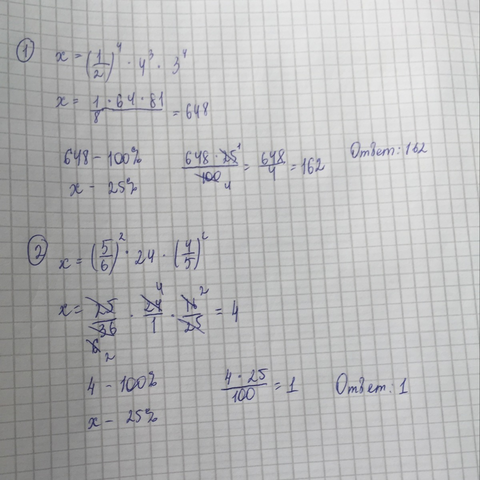 ① x = (1/2)^4 · 4^3 · 3^4
x = 1 · 64 · 81 / 8 = 648
648 - 100%
x - 25%
648 · 25 / 100 = 648 / 4 = 162
Ответ: 162
② x = (5/6)^2 · 24 · (4/5)^2
x = 25/36 · 24/1 · 16/25 = 4
4 - 100%
x - 25%
4 · 25 / 100 = 1
Ответ: 1